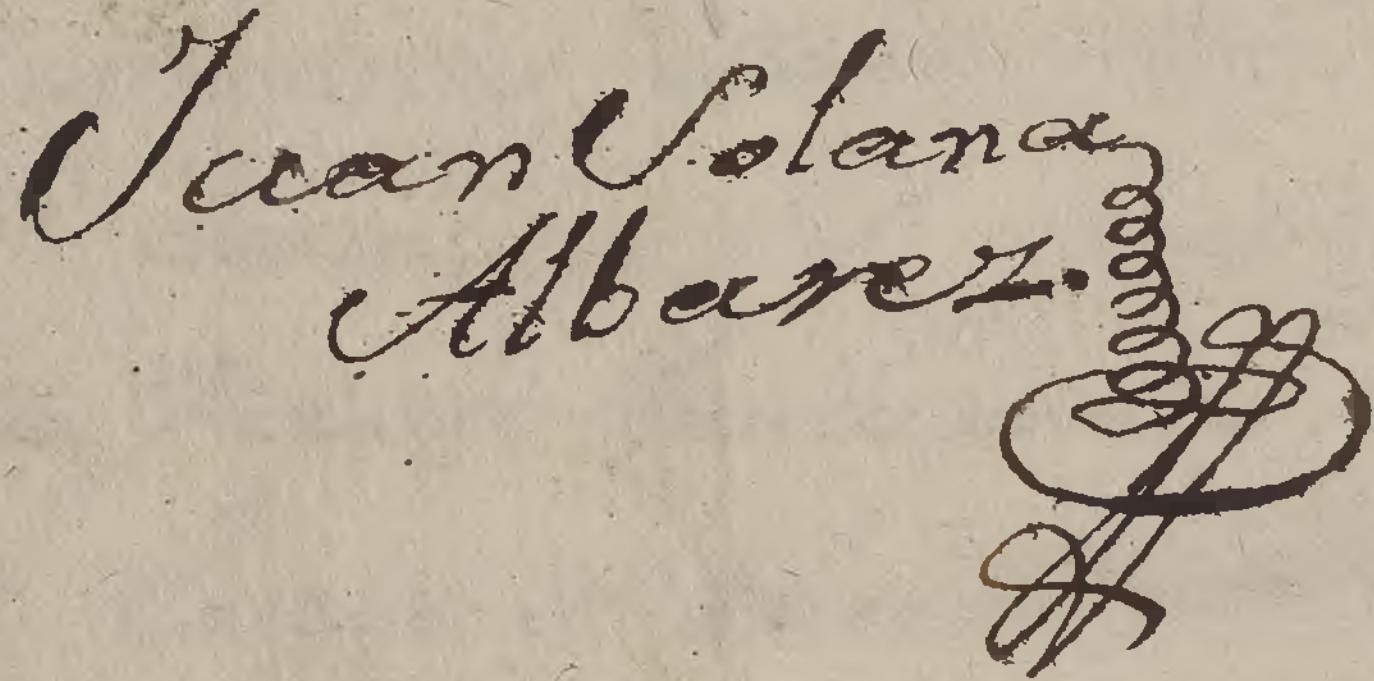 Juan Solana
Albarez.